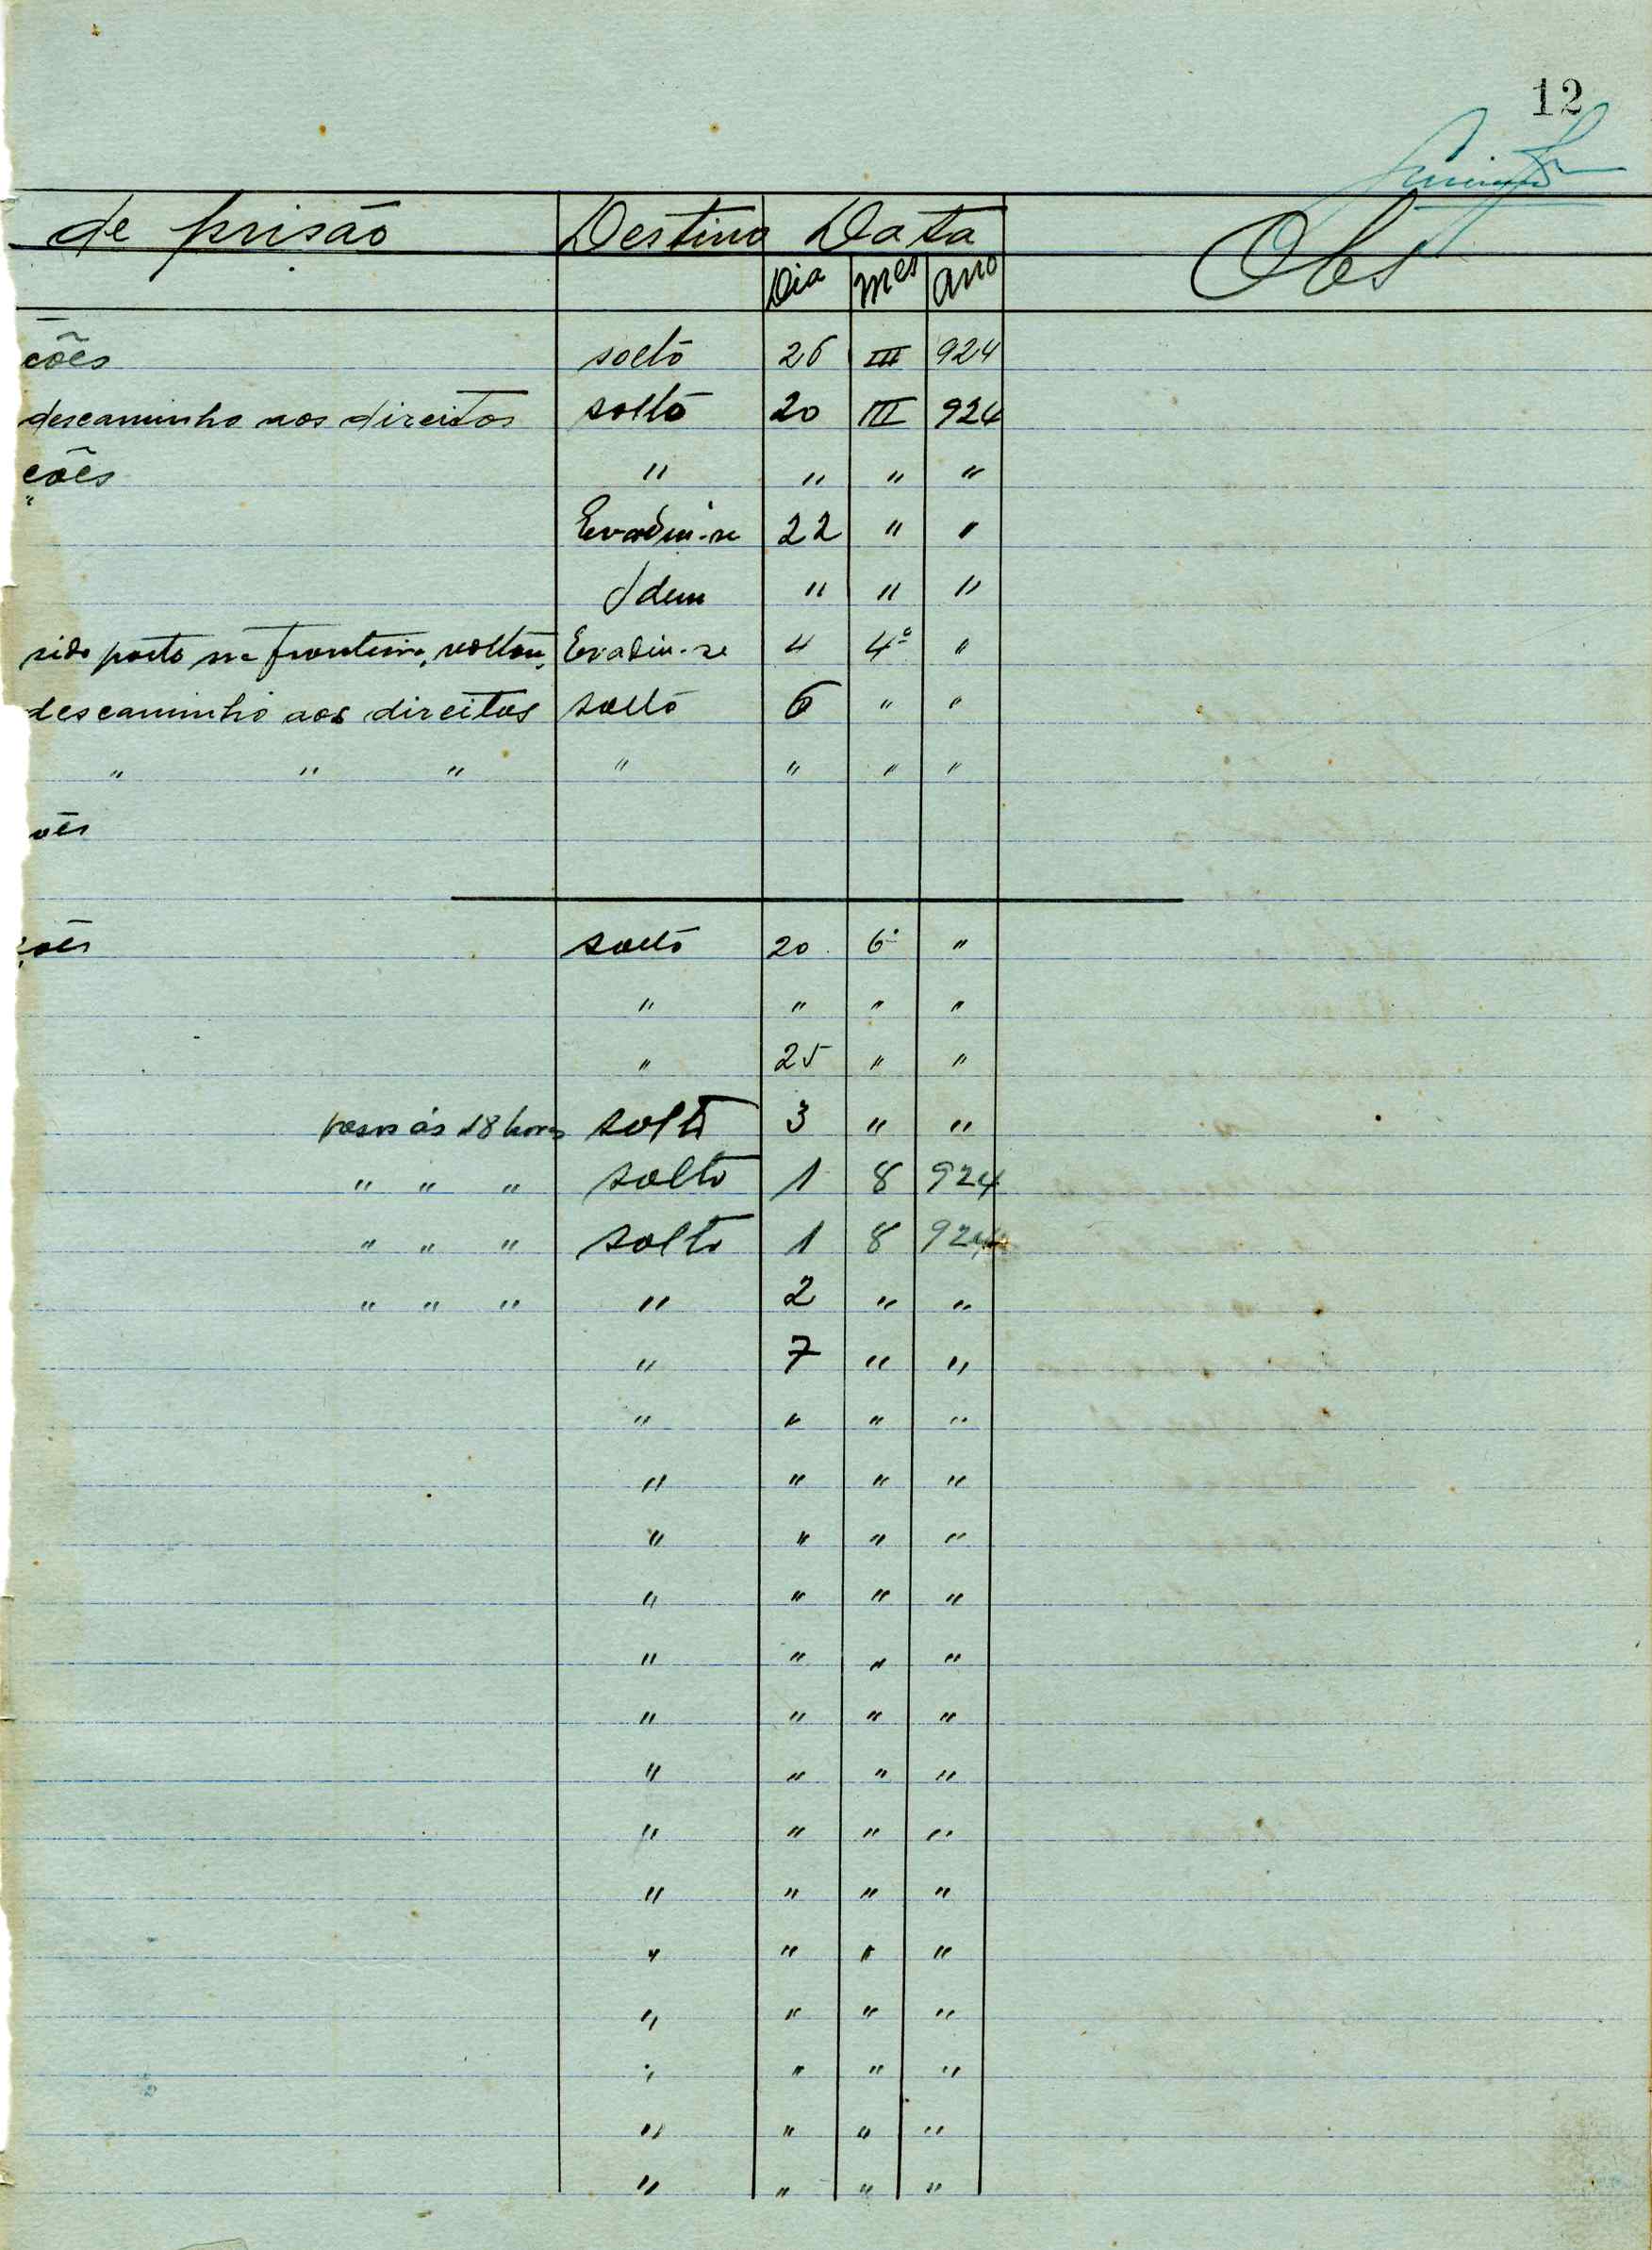 12
de prisão Destino Data Obs
Dia mes ano
ções solto 26 III 924
descaminho aos direitos solto 20 III 924
ções " " " "
" Evadiu-se 22 " "
Idem " " "
sido posto na fronteira, voltou, Evadiu-se 4 4º "
descaminho aos direitos solto 6 " "
" " " " " " "
ões
ções solto 20 6º "
" " " "
" 25 " "
ás 18 horas solto 3 " "
" " " solto 1 8 924
" " " solto 1 8 924
" " " " 2 " "
" 7 " "
" " " "
" " " "
" " " "
" " " "
" " " "
" " " "
" " " "
" " " "
" " " "
" " " "
" " " "
" " " "
" " " "
" " " "